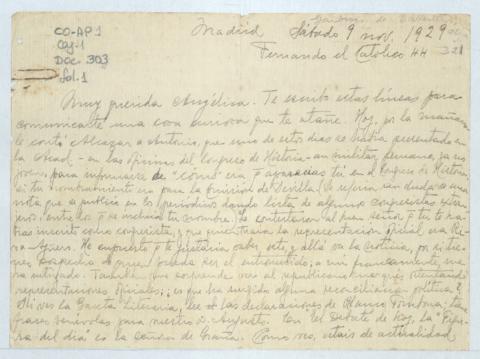 CO-AP1
Caj. 1
Doc. 303
fol. 1
Madrid Sábado 9 nov. 1929
Fernando el Católico 44
321
Muy querida Angélica: Te escribo estas líneas para
comunicarte una cosa curiosa que te atañe. Hoy, por la mañana
le contó Alcázar a Antonio, que uno de estos días se había presentado en
la Acad. - en las oficinas del Congreso de Historia - un militar peruano, ya no
joven, para informarse de "cómo" era q aparecías tú en el Congreso de Historia,
si tu nombramiento era para la Sección de Sevilla. (Se refería sin duda a una
nota que se publicó en los periódicos dando lista de algunos congresistas extran-
jeros, entre los q se incluía tu nombre). Le contestaron al buen señor q tú te habías
inscrito como congresista, y que quien traía la representación oficial era Riva
Agüero. He supuesto q te gustaría saber esto, y allá va la noticia, por si tienes
sospecha de quien pueda ser el entrometido; a mí francamente me
ha intrigado. También me sorprende ver al republicano
representaciones oficiales; ¿es que ha surgido alguna reconciliación política?
Si ves la Gaceta Literaria, lee las declaraciones de Blanco Fombona; tiene
frases benévolas para nuestro D. Augusto. En el Debate de hoy, la "Figu-
ra del día" es la Cónsul de España. Como ves, estáis de actualidad